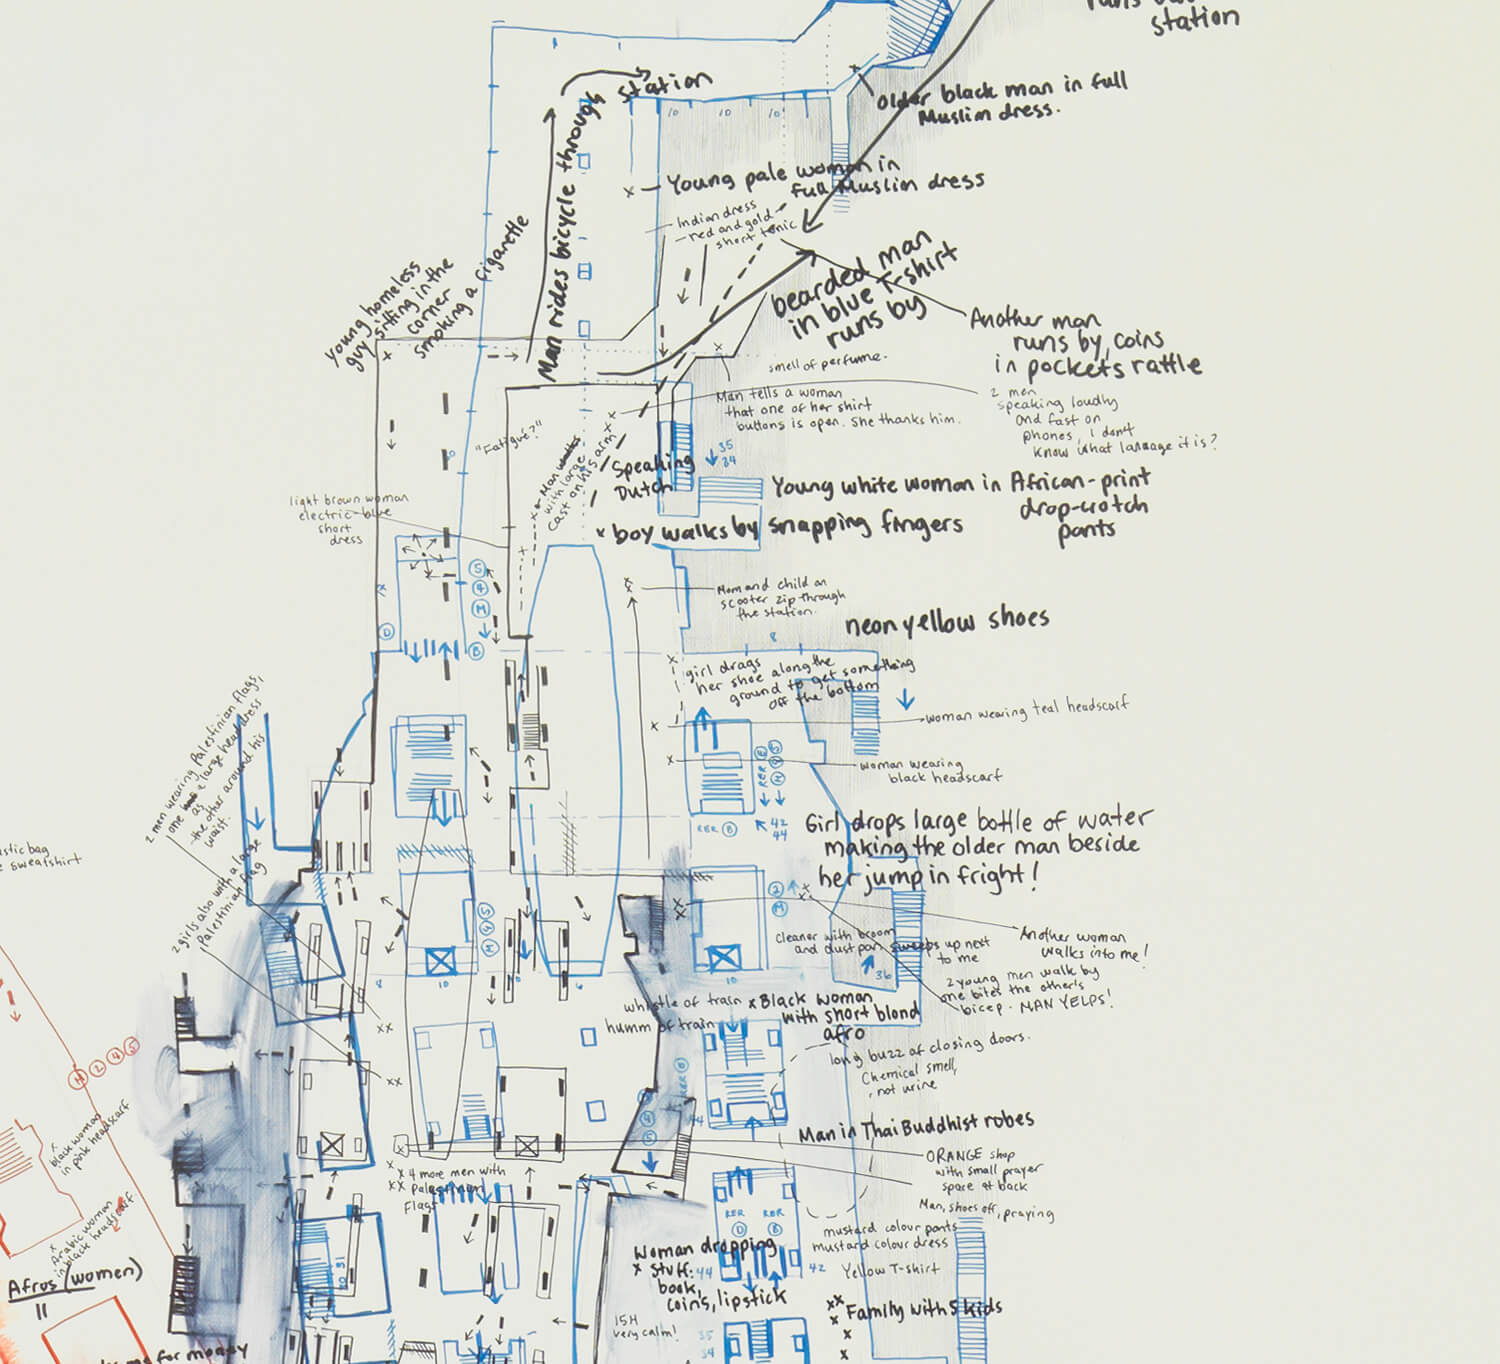 station
Older black man in full
Muslim dress.
Station
Man rides bicycle through
Young pale woman in
full Muslim dress
Indian dress
red and gold
short tunic
Young homeless
guy sitting in the
corner
smoking a cigarette
bearded man
in blue T-shirt
runs by
Another man
runs by, coins
in pockets rattle
smell of perfume.
Man tells a woman
that one of her shirt
buttons is open. She thanks him.
2 men
speaking loudly
and fast on
phones, I don't
know what language it is?
"Fatigué?"
Man
with large
cast on his arm
Speaking
Dutch
35
34
Young white woman in African-print
drop-crotch
pants
light brown woman
electric blue
short
dress
boy walks by snapping fingers
Mom and child on
scooter zip through
the station.
neon yellow shoes
girl drags
her shoe along the
ground to get something
off the bottom
woman wearing teal headscarf
woman wearing
black headscarf
2 men wearing Palestinian flags,
one as a large headdress
the other around his
waist.
2 girls also with a large
Palestinian flag
Girl drops large bottle of water
making the older man beside
her jump in fright!
42
44
RER B
cleaner with broom
and dust pan sweeps up next
to me
Another woman
walks into me!
2 young men walk by
one bites the other's
bicep - MAN YELPS!
36
whistle of train
humm of train
Black woman
with short blond
afro
long buzz of closing doors.
Chemical smell,
not urine
Man in Thai Buddhist robes
ORANGE shop
with small prayer
space at back
Man, shoes off, praying
4 more men with
Palestinian
Flags
mustard colour pants
mustard colour dress
Yellow T-shirt
Woman dropping
stuff:
book,
coins, lipstick
44
42
RER D
RER B
Family with 5 kids
15H
very calm!
35
34
30 31
plastic bag
sweatshirt
M 2 4 5
black woman
in pink headscarf
Arabic woman
in black headscarf
Afros (women)
II
me for money